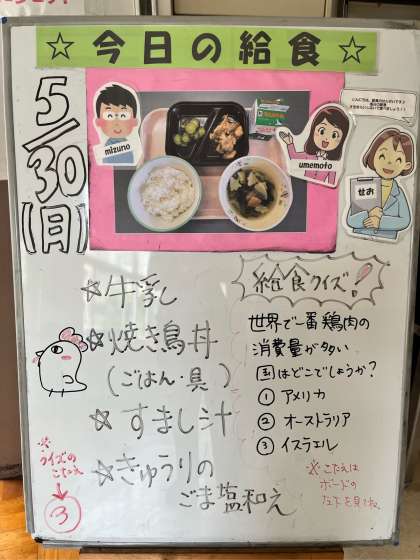 ☆今日の給食☆
5/30(月)
mizuno
umemoto
せお
☆牛乳
☆焼き鳥丼
(ごはん・具)
☆すまし汁
☆きゅうりの
ごま塩和え
給食クイズ!
世界で一番鶏肉の
消費量が多い
国はどこでしょうか?
① アメリカ
② オーストラリア
③ イスラエル
※こたえは
ボードの
左下を見てね。
※
クイズの
こたえ
③